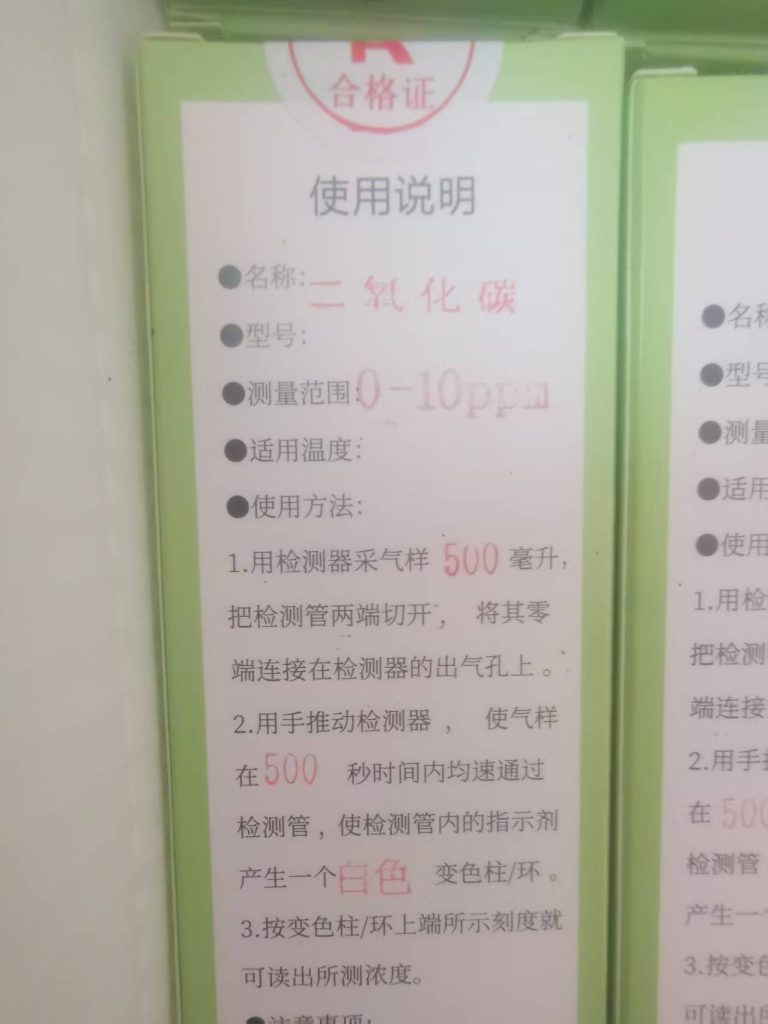 R
合格证
使用说明
●名称:二氧化碳
●型号:
●测量范围:0-10ppm
●适用温度:
●使用方法:
1.用检测器采气样 500 毫升,
把检测管两端切开， 将其零
端连接在检测器的出气孔上。
2.用手推动检测器， 使气样
在500 秒时间内均速通过
检测管，使检测管内的指示剂
产生一个白色 变色柱/环。
3.按变色柱/环上端所示刻度就
可读出所测浓度。
●注意事项:
●名称
●型号
●测量
●适用
●使用
1.用检
把检测
端连接
2.用手推
在 500
检测管
产生一个
3.按变色
可读出所